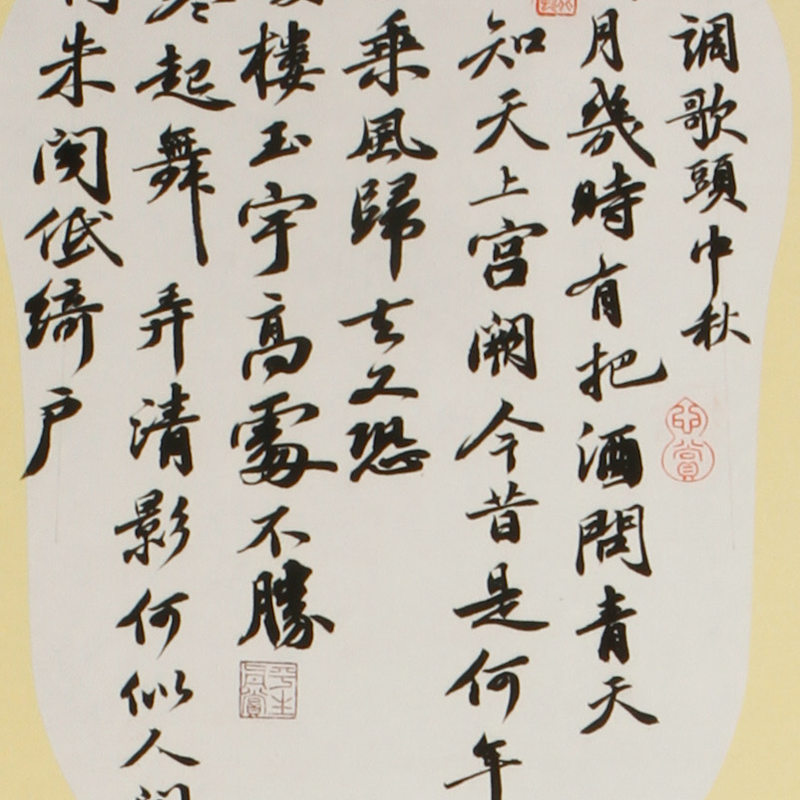 調歌頭中秋
月幾時有把酒問青天
知天上宫闕今昔是何年
乘風歸去又恐
樓玉宇高處不勝
起舞弄清影何似人間
朱閣低綺户
平生真賞